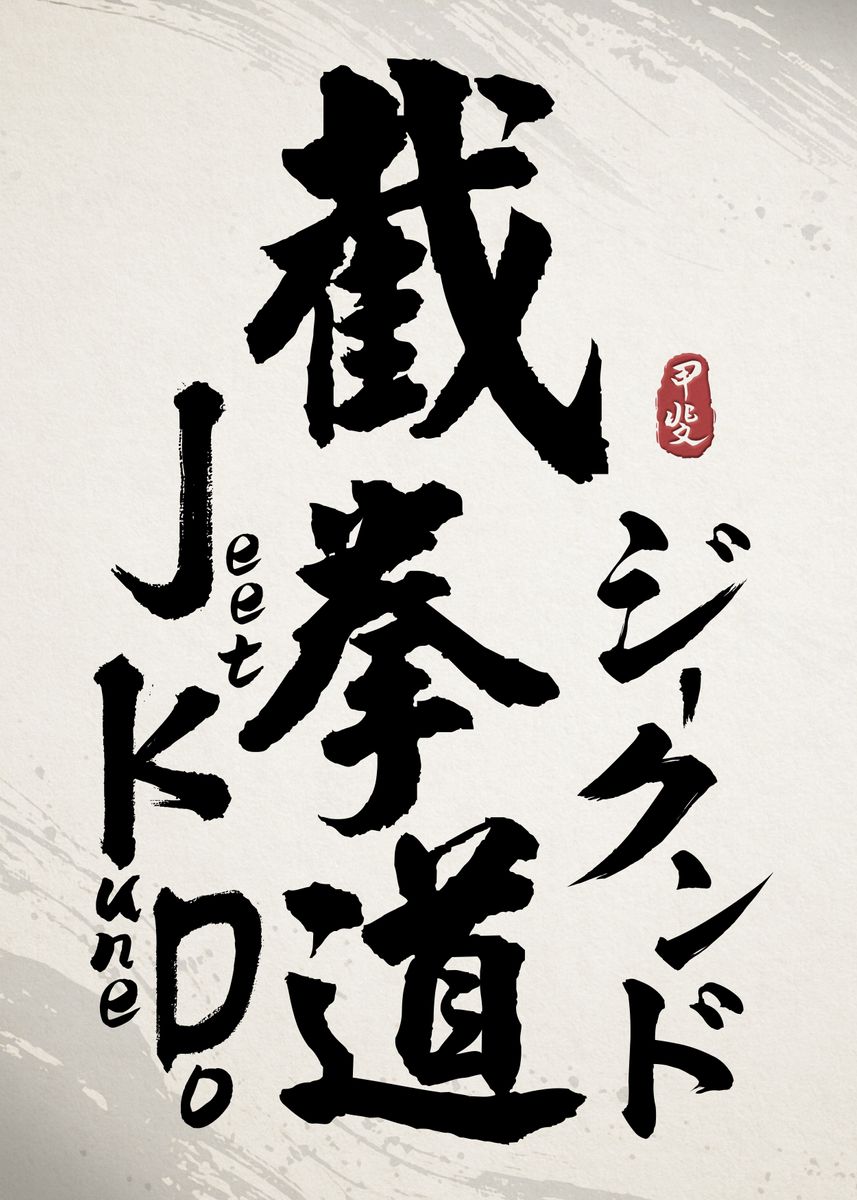 截拳道
Jeet
Kune
Do
ジークンド
甲斐